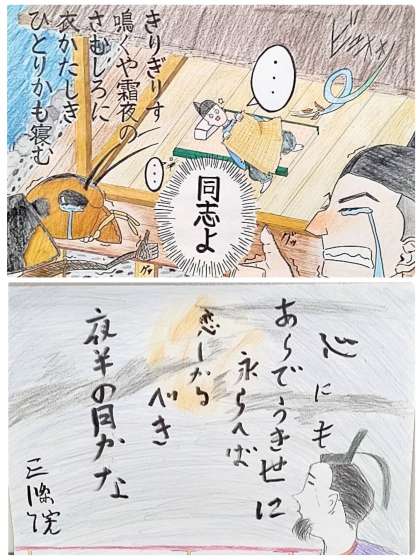 きりぎりす
鳴くや霜夜の
さむしろに
衣かたしき
ひとりかも寝む
…
…
同志よ
グッ
グッ
心にも
あらでうきせに
永らへば
恋しかる
べき
夜半の月かな
三條院